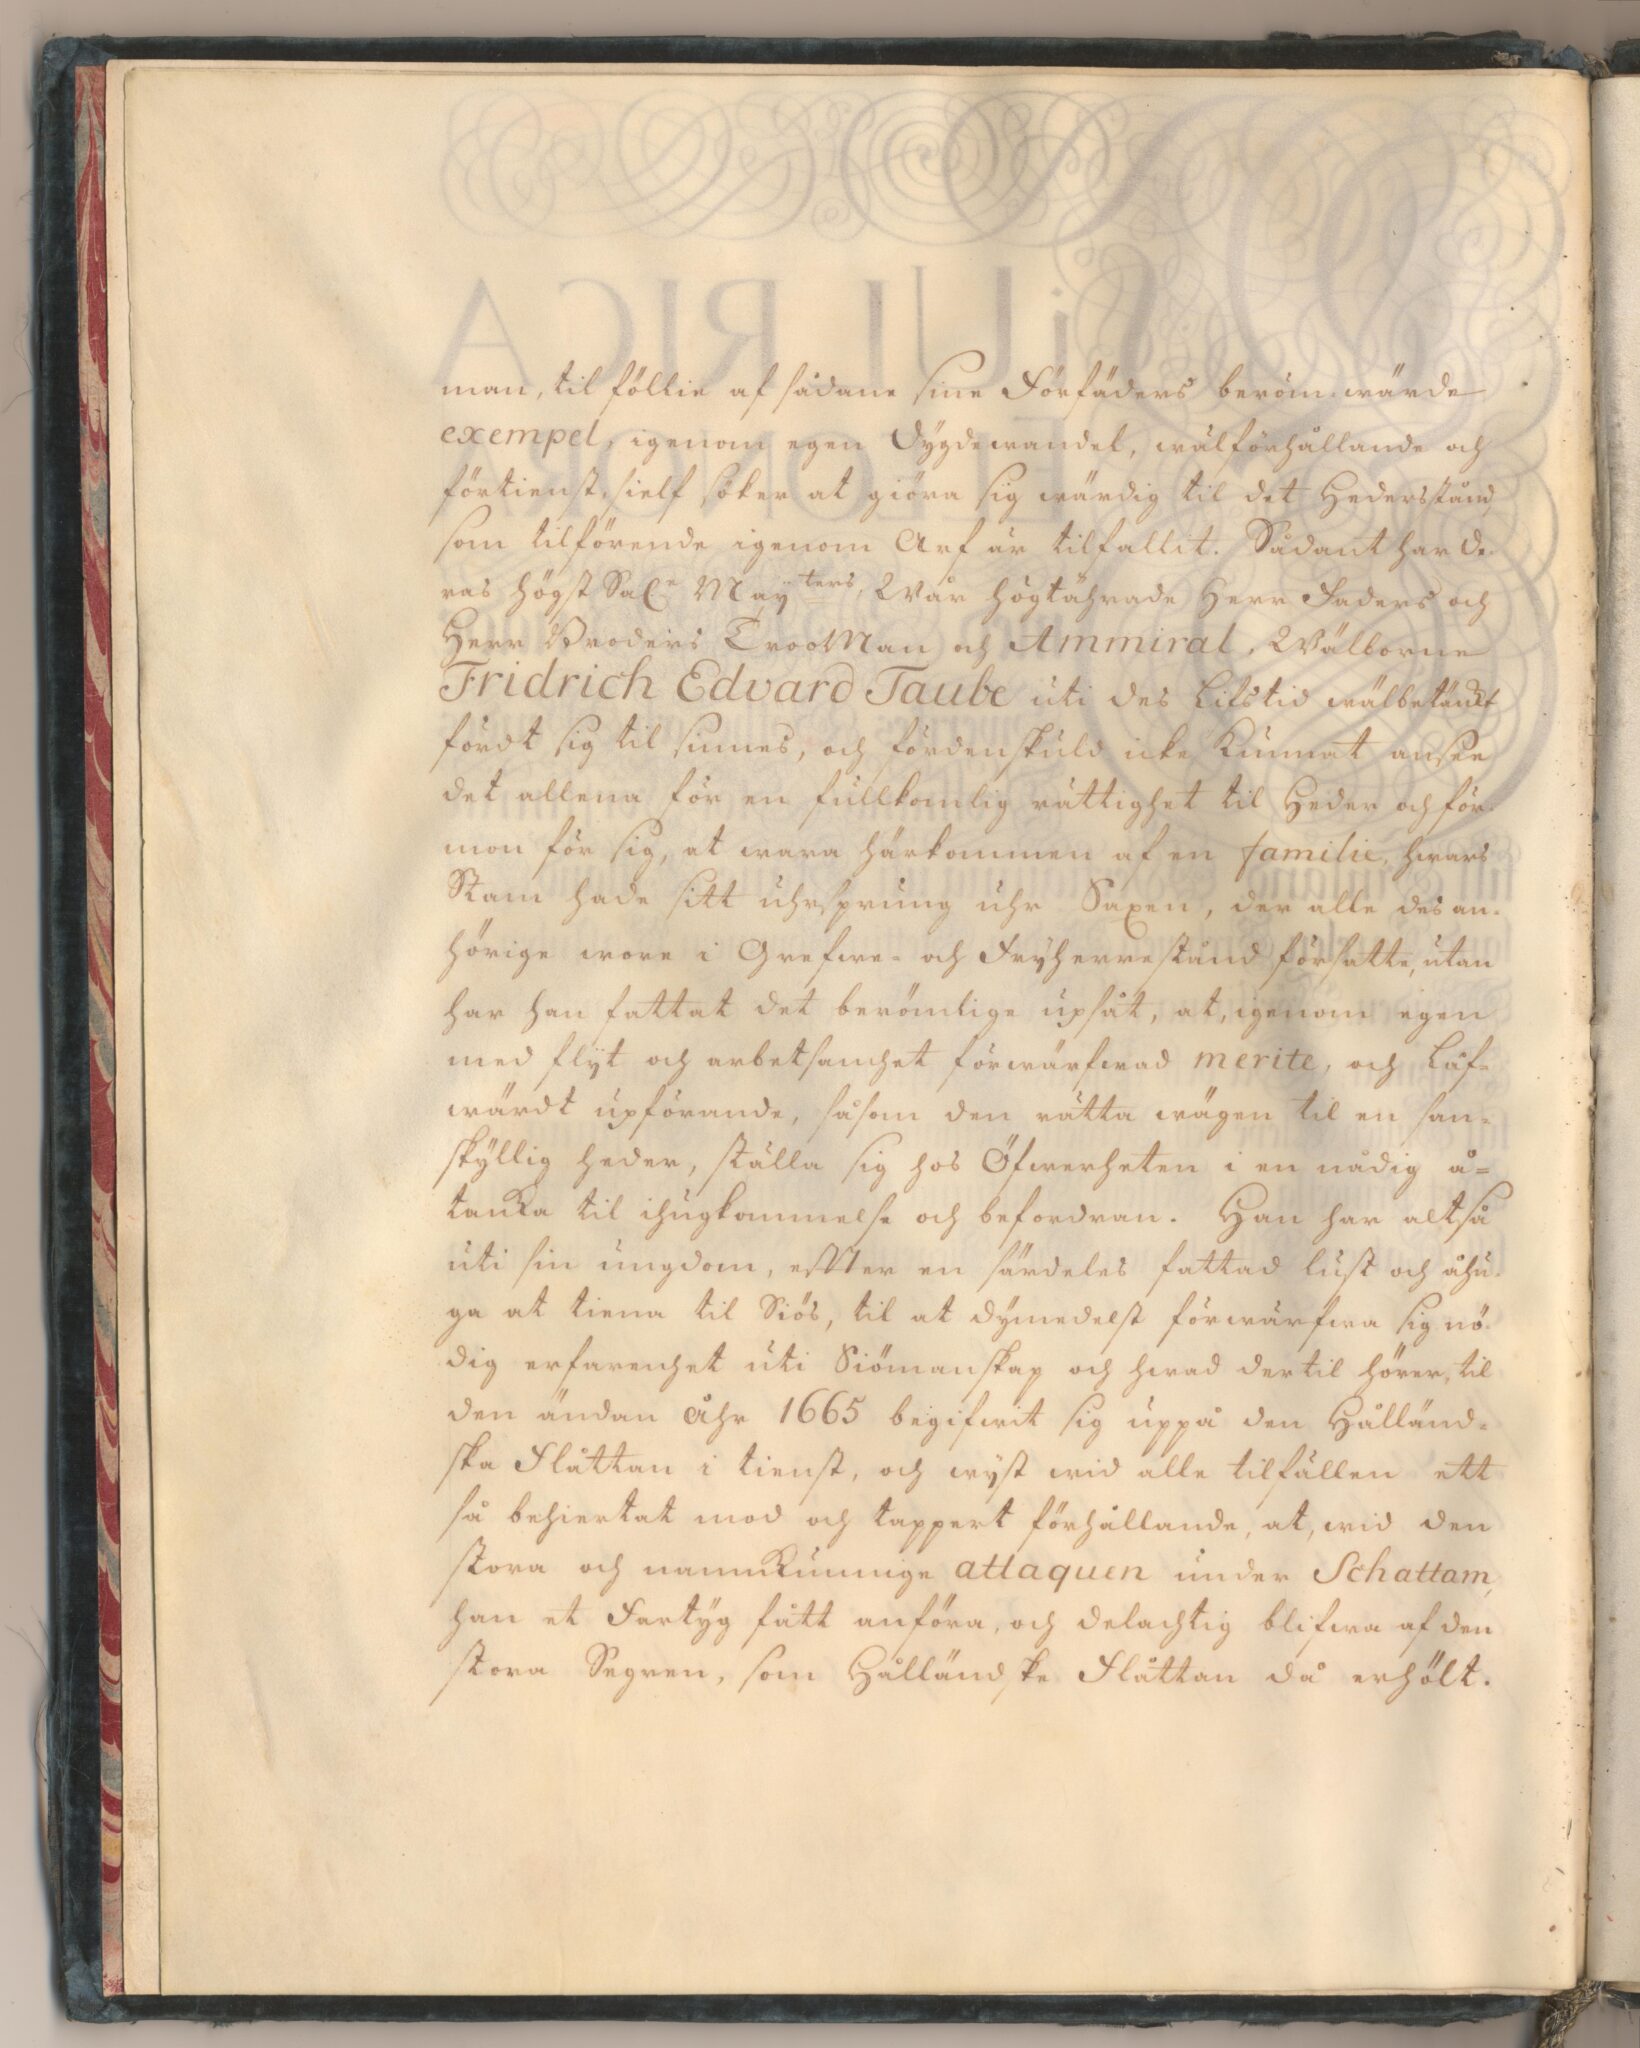 man, til föllie af sådane sine Förfäders beröm wärde
exempel, igenom egen Dygdewandel, wälförhållande och
förtienst, sielf söker at giöra sig wärdig til det Hedersstånd
som tilförende igenom Arf är tilfallit. Sådant har de-
ras högst Sal:e May:ters, Wår högtährade Herr Faders och
Herr Broders TrooMan och Ammiral, Wälborne
Fridrich Edvard Taube uti des Lifstid wälbetänckt
fördt sig til sinnes, och fördenskuld icke kunnat ansee
det allena för en fullkomlig rättighet til Heder och för-
mon för sig, at wara härkommen af en familie, hwars
Stam hade sitt uhrsprung uhr Saxen, der alle des an-
hörige wore i Grefwe- och Fryherrestånd försatte, utan
har han fattat det berömlige upsåt, at, igenom egen
med flyt och arbetsamhet förwärfwad merite, och låf-
wärdt upförande, såsom den rätta wägen til en san-
skyllig heder, ställa sig hos Öfwerheten i en nådig å-
tanka til ihugkommelse och befordran. Han har altså
uti sin ungdom, effter en särdeles fattad lust och åhu-
ga at tiena til Siös, til at dymedelst förwärfwa sig nö-
dig erfarenhet uti Siömanskap och hwad dertil hörer, til
den ändan åhr 1665 begifwit sig uppå den Hålländ-
ska Flåttan i tienst, och wyst wid alle tilfällen ett
så behiertat mod och tappert förhållande, at, wid den
stora och namnkunnige attaquen under Schattam,
han et Fartyg fått anföra, och delachtig blifwa af den
stora Segren, som Hålländske Flåttan då erhölt.